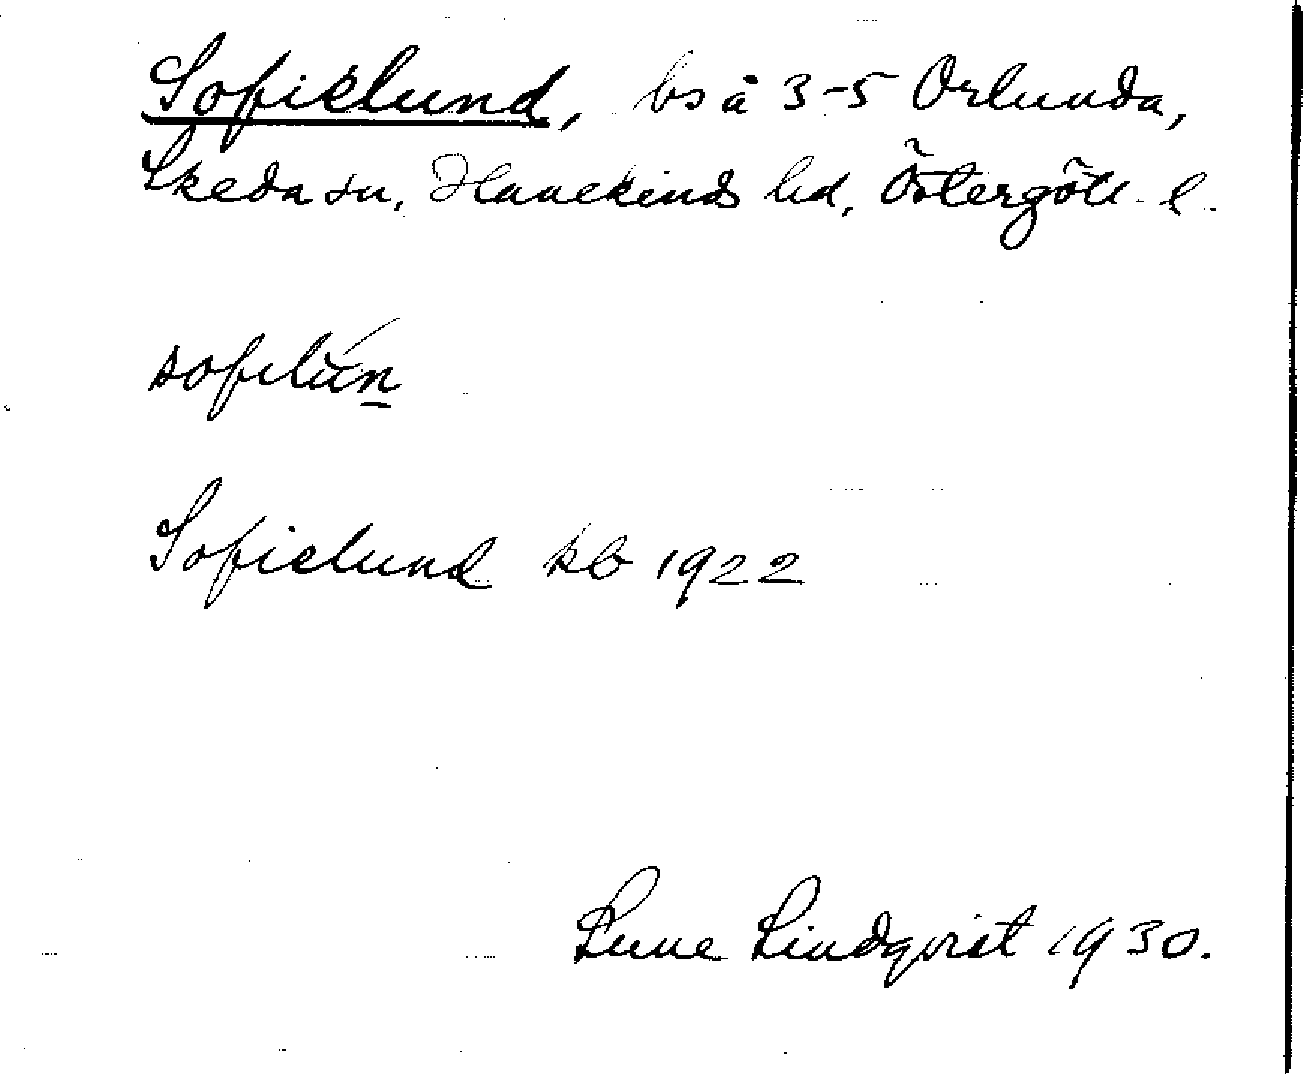 Sofielund, bs å 3-5 Orlunda,
Skeda sn, Hanekinds hd, Östergötl. l.
sofilún
Sofielund kb 1922
Rune Lindqvist 1930.